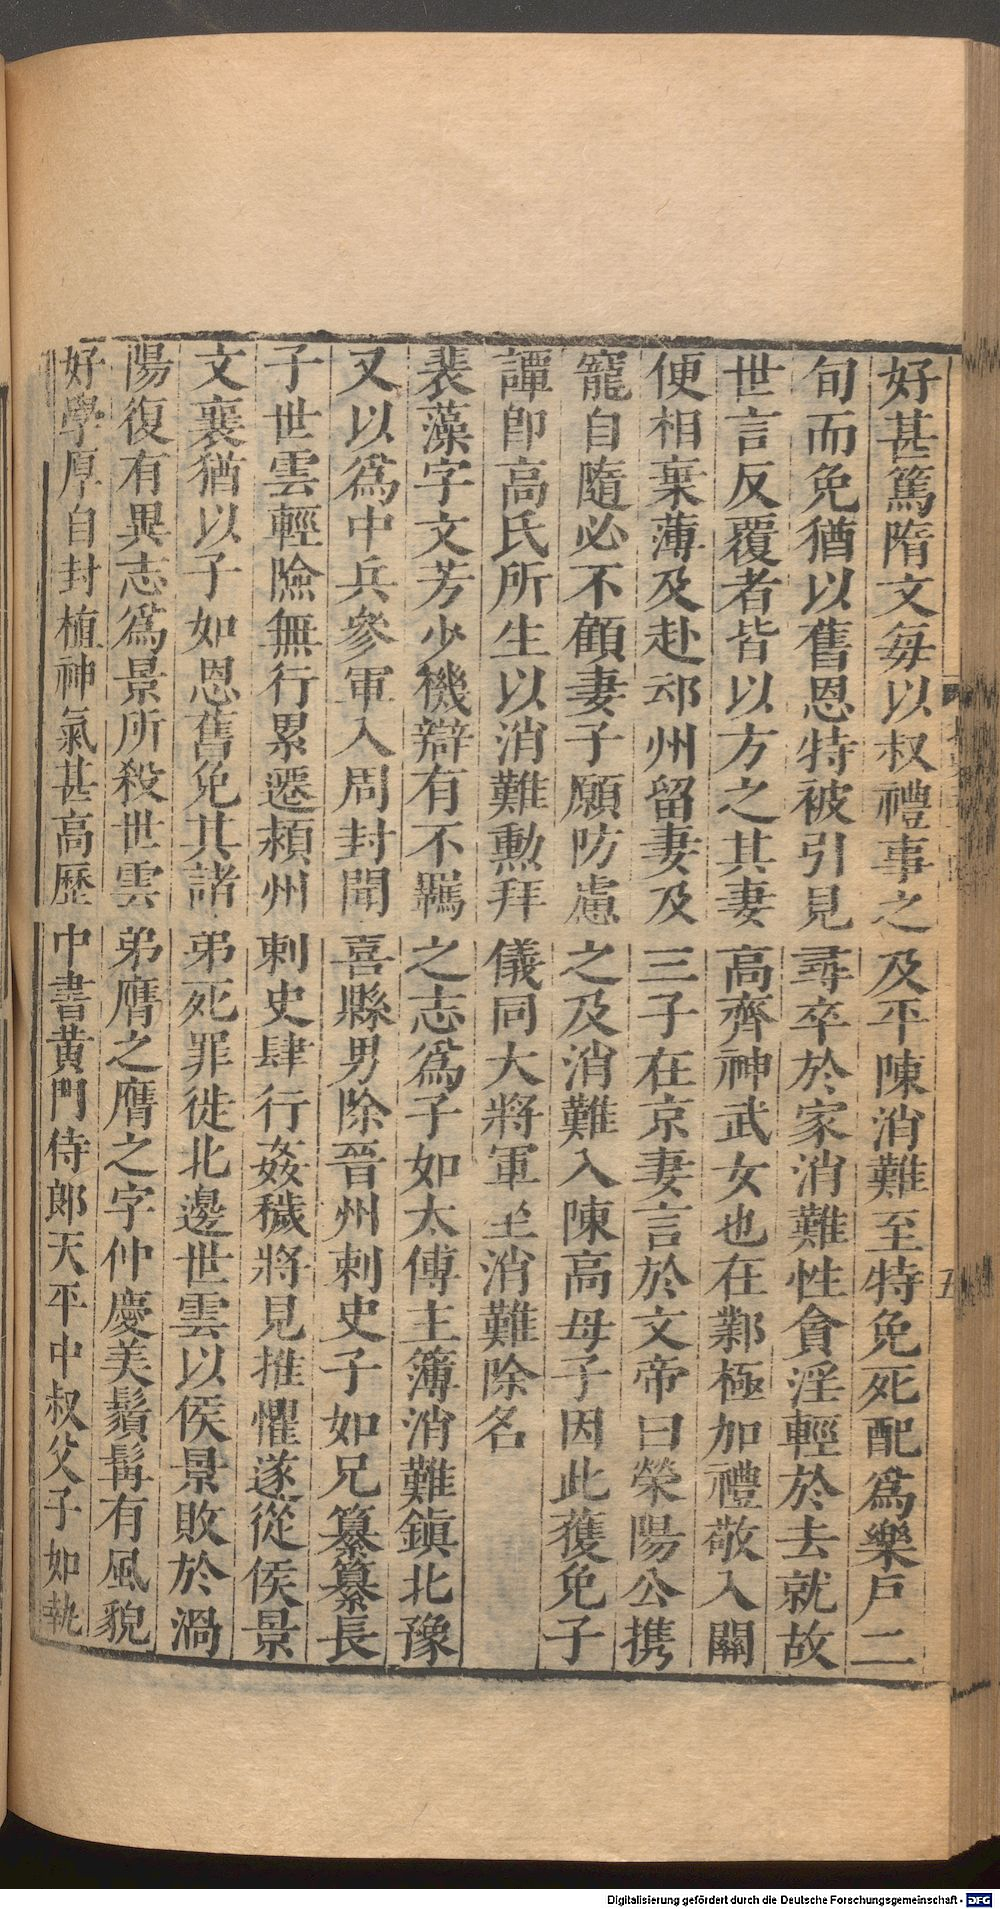 好甚篤隋文每以叔禮事之及平陳消難至特免死配爲樂戶二
旬而免猶以舊恩特被引見尋卒於家消難性貪淫輕於去就故
世言反覆者皆以方之其妻高齊神武女也在鄴極加禮敬入關
便相棄薄及赴邳州留妻及三子在京妻言於文帝曰榮陽公携
寵自隨必不顧妻子願防慮之及消難入陳高母子因此獲免子
譚卽高氏所生以消難勲拜儀同大將軍坐消難除名
裴藻字文芳少機辯有不羈之志爲子如太傅主簿消難鎮北豫
又以爲中兵參軍入周封聞喜縣男除晉州刺史子如兄纂纂長
子世雲輕險無行累遷潁州刺史肆行姦穢將見推懼遂從侯景
文襄猶以子如恩舊免其諸弟死罪徙北邊世雲以侯景敗於渦
陽復有異志爲景所殺世雲弟膺之膺之字仲慶美鬚髯有風貌
好學厚自封植神氣甚高歷中書黄門侍郎天平中叔父子如執
Digitalisierung gefördert durch die Deutsche Forschungsgemeinschaft - DFG